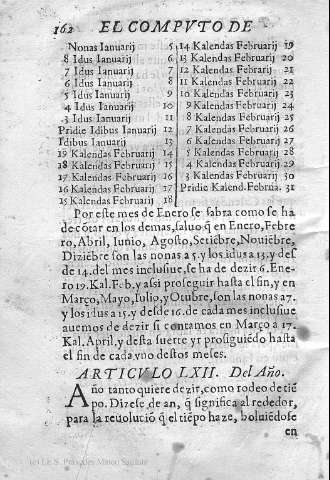 162 EL COMPVTO DE
Nonas Ianuarij 5
8 Idus Ianuarij 6
7 Idus Ianuarij 7
6 Idus Ianuarij 8
5 Idus Ianuarij 9
4 Idus Ianuarij 10
3 Idus Ianuarij 11
Pridie Idibus Ianuarij 12
Idibus Ianuarij 13
19 Kalendas Februarij 14
18 Kalendas Februarij 15
17 Kalendas Februarij 16
16 Kalendas Februarij 17
15 Kalendas Februarij 18
14 Kalendas Februarij 19
13 Kalendas Februarij 20
12 Kalendas Februarij 21
11 Kalendas Februarij 22
10 Kalendas Februarij 23
9 Kalendas Februarij 24
8 Kalendas Februarij 25
7 Kalendas Februarij 26
6 Kalendas Februarij 27
5 Kalendas Februarij 28
4 Kalendas Februarij 29
3 Kalendas Februarij 30
Pridie Kalend. Februa. 31
Por este mes de Enero se sabra como se ha
de cōtar en los demas, saluo q̄ en Enero, Febre
ro, Abril, Iunio, Agosto, Setiēbre, Nouiēbre,
Diziēbre son las nonas a 5. y los idus a 13. y des
de 14. del mes inclusiue, se ha de dezir 6. Ene-
ro 19. Kal. Feb. y assi proseguir hasta el fin, y en
Março, Mayo, Iulio, y Otubre, son las nonas a 7.
y los idus a 15. y desde 16. de cada mes inclusiue
auemos de dezir si contamos en Março a 17.
Kal. April. y desta suerte yr prosiguiēdo hasta
el fin de cada vno destos meses.
ARTICVLO LXII. Del Año.
Año tanto quiere dezir, como rodeo de tiē
po. Dizese de an, q̄ significa al rededor,
para la reuoluciō q̄ el tiēpo haze, boluiēdose
en